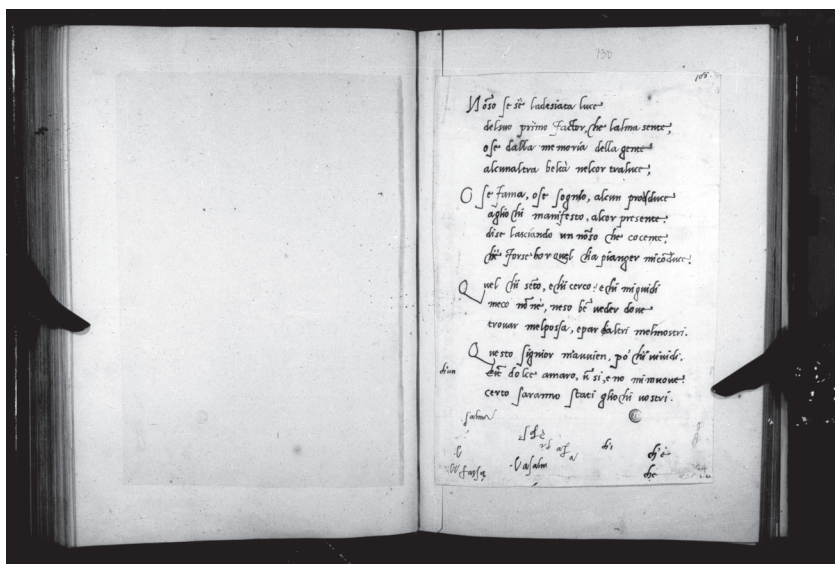 150
108.
Nõso se s'è ladesiata luce
delsuo primo Factor, che lalma sente,
ose dalla memoria della gente
alcunaltra beltà nelcor traluce,
O se fama, ose sognio, alcun produce
agliochi manifesto, alcor presente.
dise lasciando un nõso che cocente,
chè forse hor quel cha pianger micõduce.
Quel chi sēto, e chi cerco: e chi miguidi
meco nõ nè, neso bē ueder doue
trouar melpossa, e par chaltri melmostri.
Questo signior mauuien, po' chi uiuidi.
chun
dolce amaro, ũ si, e no mi muoue.
certo saranno stati gliochi uostri.
salm
chi
chè
salm
che